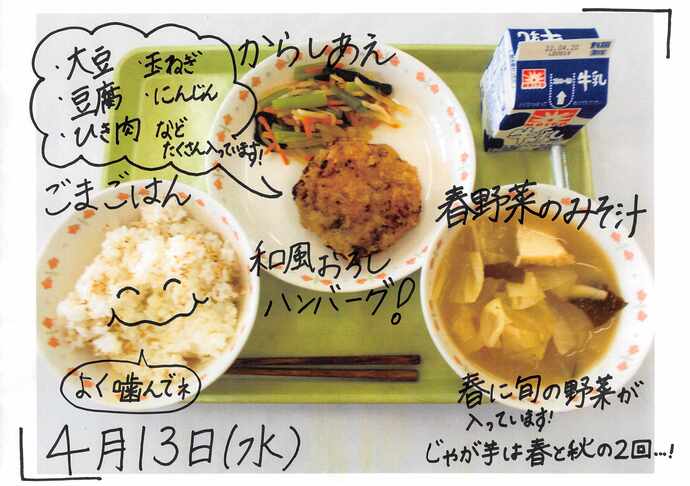 ・大豆 ・玉ねぎ
・豆腐 ・にんじん
・ひき肉 など
たくさん入っています!
からしあえ
22.04.20
牛乳
ごまごはん
春野菜のみそ汁
和風おろし
ハンバーグ!
よく噛んでネ
春に旬の野菜が
入っています!
じゃが芋は春と秋の2回…!
4月13日(水)